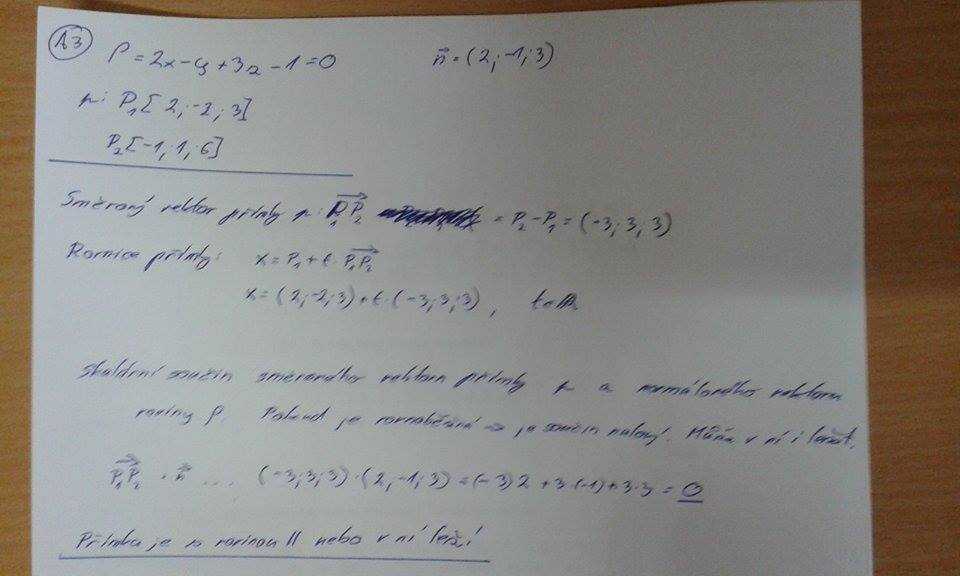 A3
ρ = 2x - y + 3z - 1 = 0 n⃗ = (2; -1; 3)
p: P₁[2; -2; 3]
P₂[-1; 1; 6]
Směrový vektor přímky p: P₁P₂ = P₂ - P₁ = (-3; 3; 3)
Rovnice přímky: x = P₁ + t · P₁P₂
x = (2; -2; 3) + t · (-3; 3; 3), t ∈ R
Skalární součin směrového vektoru přímky p a normálového vektoru
roviny ρ. Pokud je rovnoběžná => je součin nulový. Může v ní i ležet.
P₁P₂ · n⃗ ... (-3; 3; 3) · (2; -1; 3) = (-3)2 + 3·(-1) + 3·3 = 0
Přímka je s rovinou || nebo v ní leží